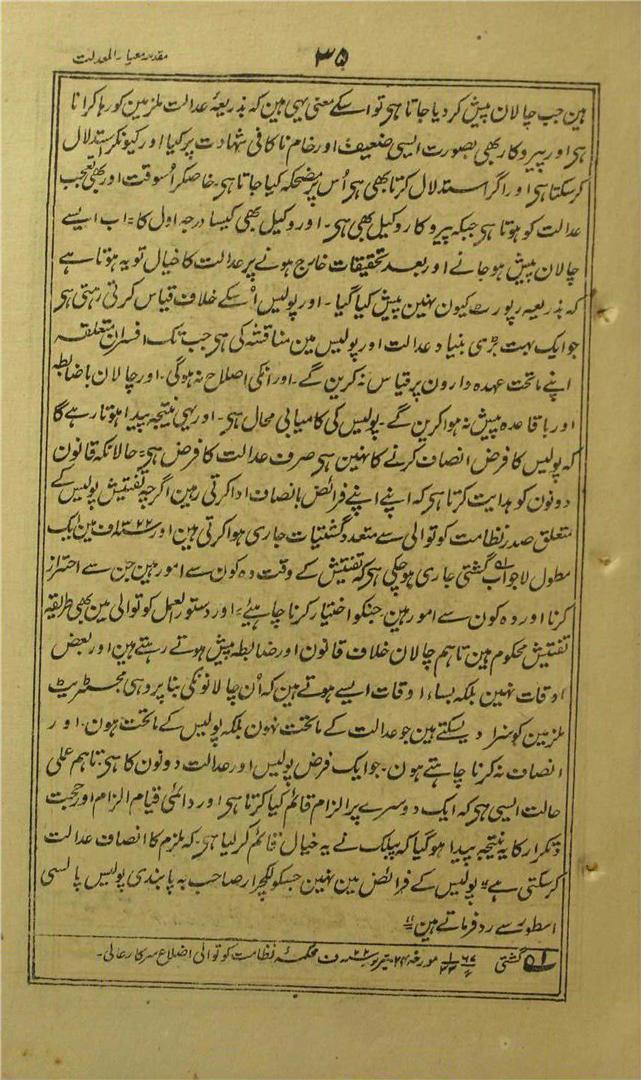 مقدمہ معیار المعدلت
۳۵
ہین جب چالان پیش کر دیا جاتا ہی تو اسکے معنی یہی ہین کہ بذریعۂ عدالت ملزمین کو رہا کرانا
ہی اور پیروکار بھی بصورت ایسی ضعیف اور خام ناکافی شہادت پر کیا اور کیونکر استدلال
کر سکتا ہی اور اگر استدلال کرتا بھی ہی اُس پر مضحکہ کیا جاتا ہی۔ خاصکر اُسوقت اور بھی تعجب
عدالت کو ہوتا ہی جبکہ پیروکار وکیل بھی ہی۔ اور وکیل بھی کیسا درجہ اول کا۔ اب ایسے
چالان پیش ہو جانے اور بعد تحقیقات خارج ہونے پر عدالت کا خیال تو یہ ہوتا ہے
کہ بذریعہ رپورٹ کیون نہین پیش کیا گیا۔ اور پولیس اُسکے خلاف قیاس کرتی رہتی ہی
جو ایک بہت بڑی بنیاد عدالت اور پولیس مین مناقشہ کی ہی جب تک افسران متعلقہ
اپنے ماتحت عہدہ دارون پر قیاس نہ کرین گے۔ اور انکی اصلاح نہ ہوگی۔ اور چالان باضابطہ
اور باقاعدہ پیش نہ ہوا کرین گے۔ پولیس کی کامیابی محال ہی۔ اور یہی نتیجہ پیدا ہوتا رہے گا
کہ پولیس کا فرض انصاف کرنے کا نہین ہی صرف عدالت کا فرض ہی۔ حالانکہ قانون
دونون کو ہدایت کرتا ہی کہ اپنے اپنے فرائض بانصاف ادا کرتی رہین اگرچہ تفتیش پولیس کے
متعلق صدر نظامت کوتوالی سے متعدد گشتیات جاری ہوا کرتی ہین اور ۱۳۲۲ف مین ایک
مطول لاجواب گشتی جاری ہوچکی ہی کہ تفتیش کے وقت وہ کون سے امور ہین جن سے احتراز
کرنا اور وہ کون سے امور ہین۔ جنکو اختیار کرنا چاہیئے۔ اور دستور العمل کوتوالی مین بھی طریقہ
تفتیش محکوم ہین تاہم چالان خلاف قانون اور ضابطہ پیش ہوتے رہتے ہین اور بعض
اوقات نہین بلکہ بساء اوقات ایسے ہوتے ہین کہ اُن چالانونکی بنا پر وہی مجسٹریٹ
ملزمین کو سزا دیسکتے ہین جو عدالت کے ماتحت نہون بلکہ پولیس کے ماتحت ہون۔ اور
انصاف نہ کرنا چاہتے ہون۔ جو ایک فرض پولیس اور عدالت دونون کا ہی تاہم علی
حالت ایسی ہی کہ ایک دوسرے پر الزام قائم کیا کرتا ہی اور دائمی قیام الزام اور حجت
و تکرار کا یہ نتیجہ پیدا ہوگیا کہ پبلک نے یہ خیال قائم کر لیا ہی۔ کہ ملزم کا انصاف عدالت
کرسکتی ہے۔ پولیس کے فرائض مین نہین جسکو لکچرار صاحب بہ پابندی پولیس پالسی
اسطور سے رد فرماتے ہین۔
گشتی مورخہ ۲۴ تیر ۱۳۲۲ف محکمۂ نظامت کوتوالی اضلاع سرکار عالی۔